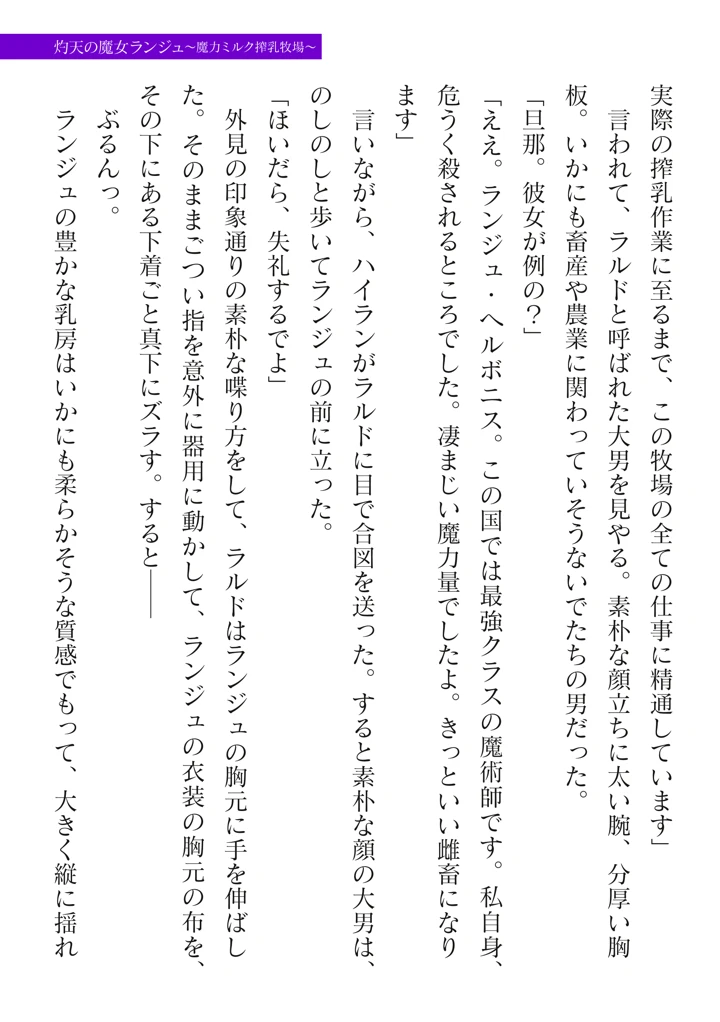 灼天の魔女ランジュ～魔力ミルク搾乳牧場～
実際の搾乳作業に至るまで、この牧場の全ての仕事に精通しています」
言われて、ラルドと呼ばれた大男を見やる。素朴な顔立ちに太い腕、分厚い胸
板。いかにも畜産や農業に関わっていそうないでたちの男だった。
「旦那。彼女が例の？」
「ええ。ランジュ・ヘルボニス。この国では最強クラスの魔術師です。私自身、
危うく殺されるところでした。凄まじい魔力量でしたよ。きっといい雌畜になり
ます」
言いながら、ハイランがラルドに目で合図を送った。すると素朴な顔の大男は、
のしのしと歩いてランジュの前に立った。
「ほいだら、失礼するでよ」
外見の印象通りの素朴な喋り方をして、ラルドはランジュの胸元に手を伸ばし
た。そのままごつい指を意外に器用に動かして、ランジュの衣装の胸元の布を、
その下にある下着ごと真下にズラす。すると――
ぶるんっ。
ランジュの豊かな乳房はいかにも柔らかそうな質感でもって、大きく縦に揺れ